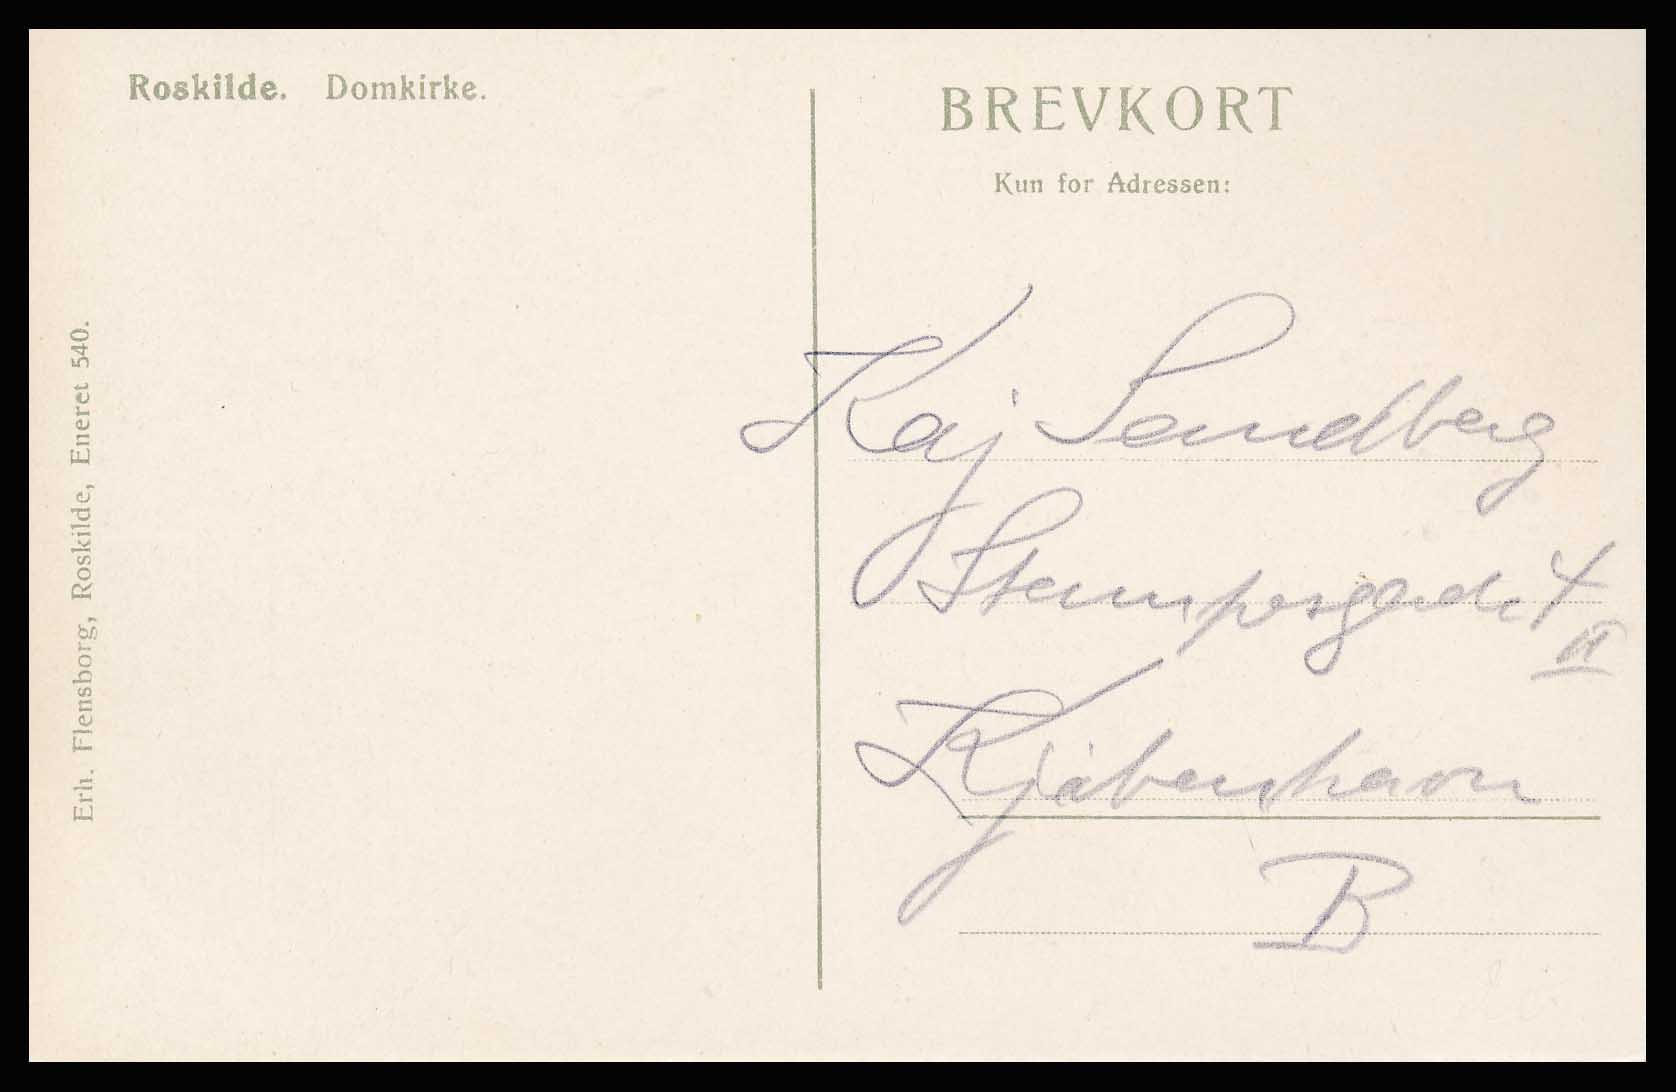 Roskilde. Domkirke.
BREVKORT
Kun for Adressen:
Kaj Sandberg
Stampesgade 4
II
Kjøbenhavn
B
Erh. Flensborg, Roskilde, Eneret 540.